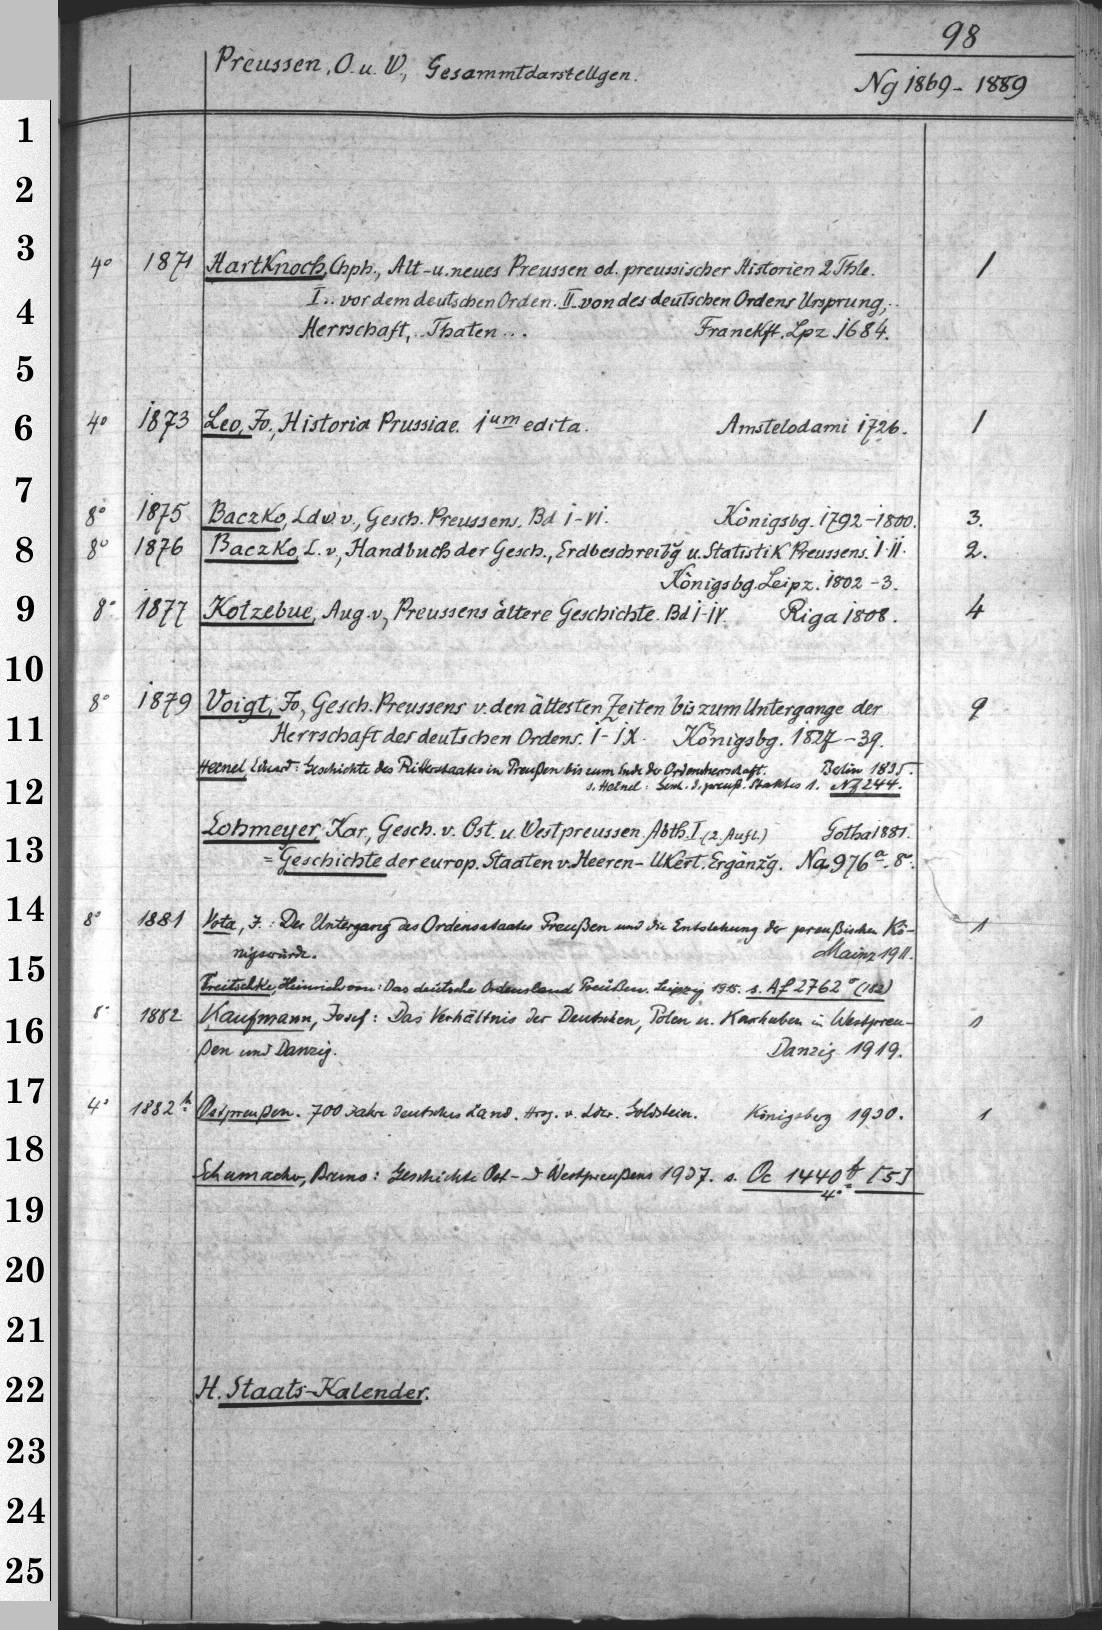 98
Preussen, O. u. W., Gesammtdarstellgen.
Ng 1869 - 1889
1
2
3
4° 1871 Hartknoch, Chph., Alt- u. neues Preussen od. preussischer Historien 2 Thle. 1
4
I .. vor dem deutschen Orden. II .. von des deutschen Ordens Ursprung, ..
Herrschaft, .. Thaten ... Franckft. Lpz. 1684.
5
6
4° 1873 Leo, Jo., Historia Prussiae. 1um edita. Amstelodami 1726. 1
7
8° 1875 Baczko, Ldw. v., Gesch. Preussens. Bd I-VI. Königsbg. 1792-1800. 3.
8
8° 1876 Baczko, L. v., Handbuch der Gesch., Erdbeschreibg u. Statistik Preussens. I.II. 2.
Königsbg. Leipz. 1802-3.
9
8° 1877 Kotzebue, Aug. v., Preussens ältere Geschichte. Bd I-IV. Riga 1808. 4
10
8° 1879 Voigt, Jo., Gesch. Preussens v. den ältesten Zeiten bis zum Untergange der 9
11
Herrschaft des deutschen Ordens. I-IX. Königsbg. 1827-39.
Heinel, Eduard: Geschichte des Ritterstaates in Preußen bis zum Ende der Ordensherrschaft. Berlin 1835.
12
s. Heinel: Gesch. d. preuß. Staates 1. Nf 244.
Lohmeyer, Kar, Gesch. v. Ost. u. Westpreussen. Abth. I (2. Aufl.) Gotha 1881.
13
= Geschichte der europ. Staaten v. Heeren-Ukert. Ergänzg. Na 976a. 8°.
14
8° 1881 Vota, J.: Der Untergang des Ordensstaates Preußen und die Entstehung der preußischen Kö- 1
nigswürde. Mainz 1911.
15
Treitschke, Heinrich von: Das deutsche Ordensland Preußen. Leipzig 1915. s. Af 2762° (182)
16
8° 1882 Kaufmann, Josef: Das Verhältnis der Deutschen, Polen u. Kaschuben in Westpreu- 1
ßen und Danzig. Danzig 1919.
17
4° 1882h Ostpreußen. 700 Jahre deutsches Land. Hrg. v. Ldw. Goldstein. Königsberg 1930. 1
18
Schumacher, Bruno: Geschichte Ost- u Westpreußens 1937. s. Oc 1440 [5]
4°
19
20
21
22
H. Staats-Kalender.
23
24
25